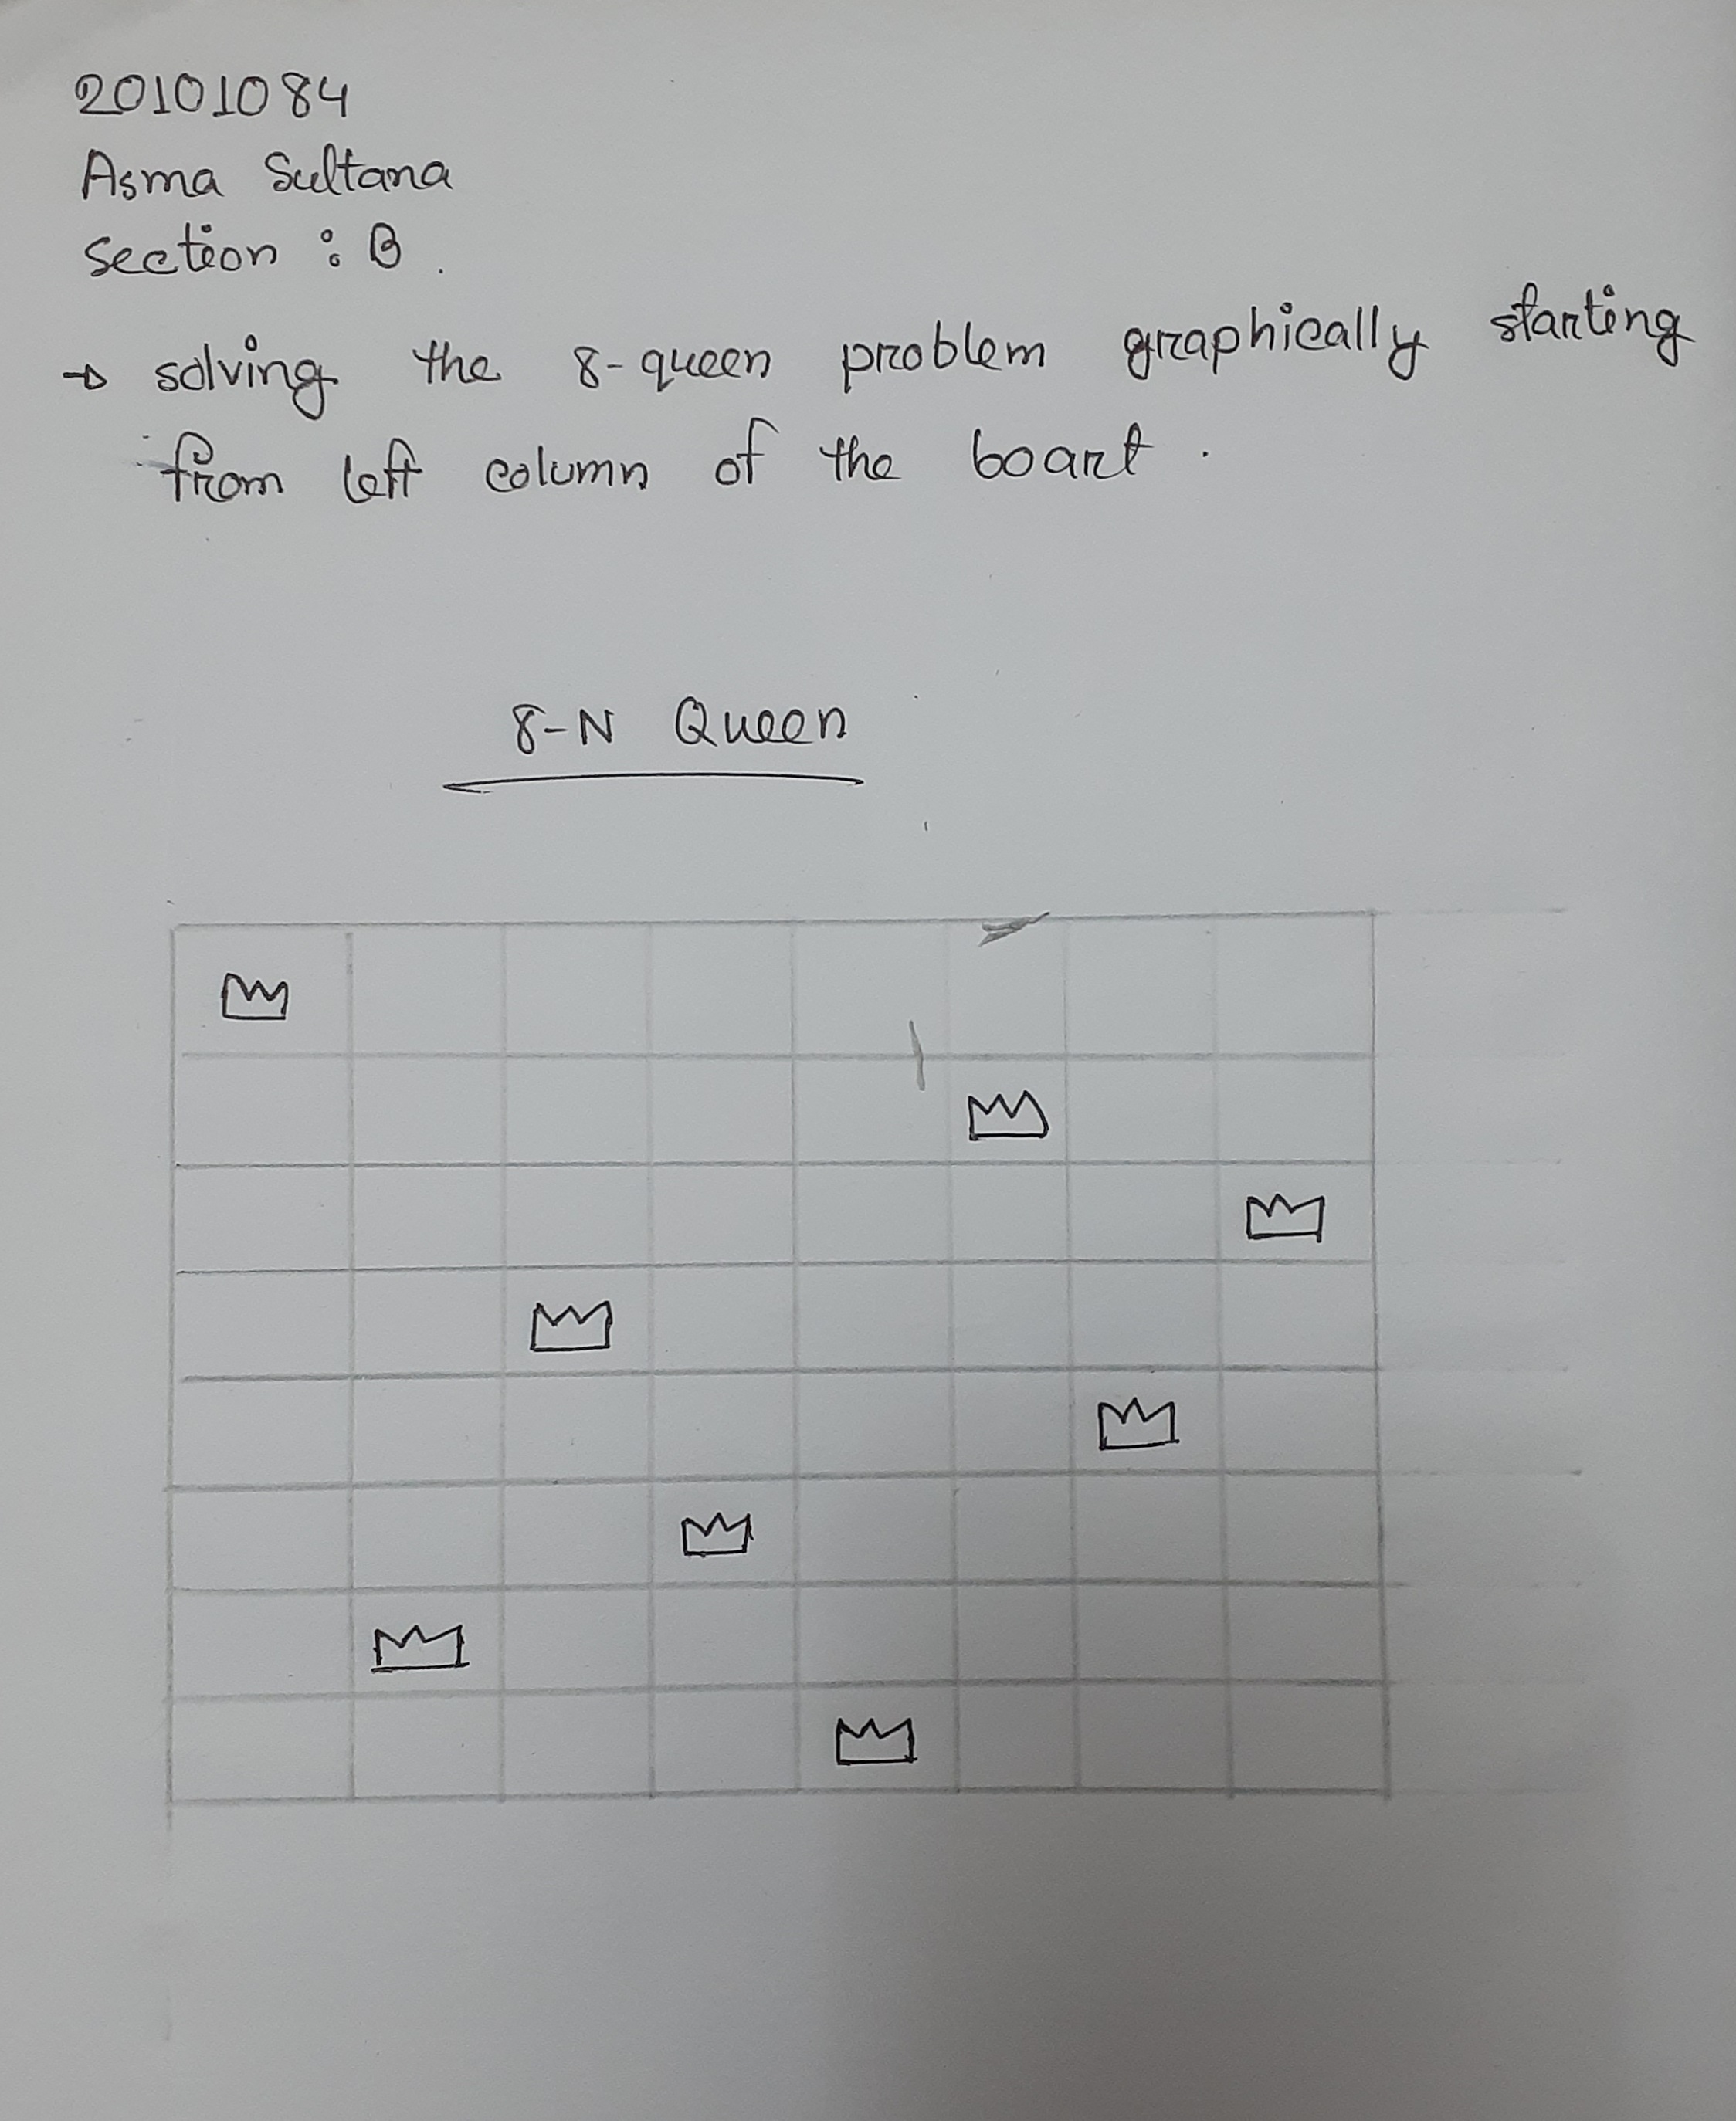 20101084
Asma Sultana
section : B.
→ solving the 8-queen problem graphically starting
from left column of the boart.
8-N Queen